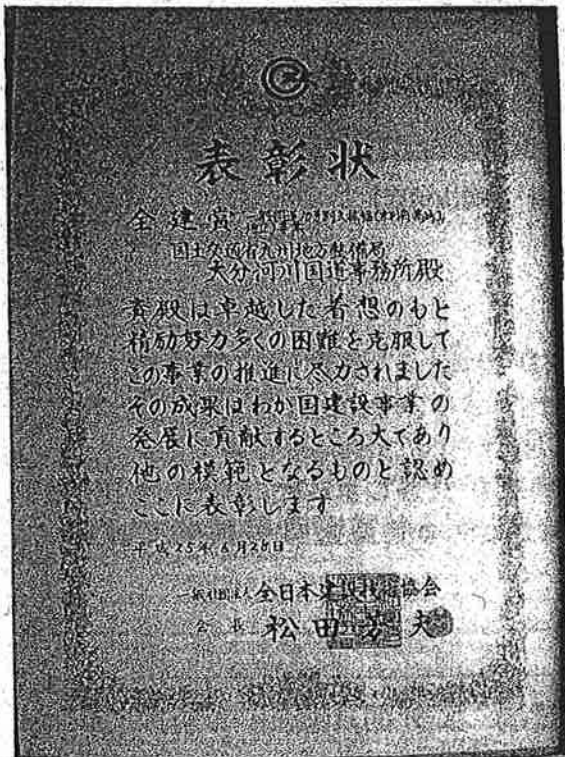 表彰状
全建賞
国土交通省九州地方整備局
大分河川国道事務所殿
貴殿は卓越した着想のもと
精励努力多くの困難を克服して
この事業の推進に尽力されました
その成果はわが国建設事業の
発展に貢献するところ大であり
他の模範となるものと認め
ここに表彰します
平成25年6月26日
一般社団法人全日本建設技術協会
会長 松田芳夫